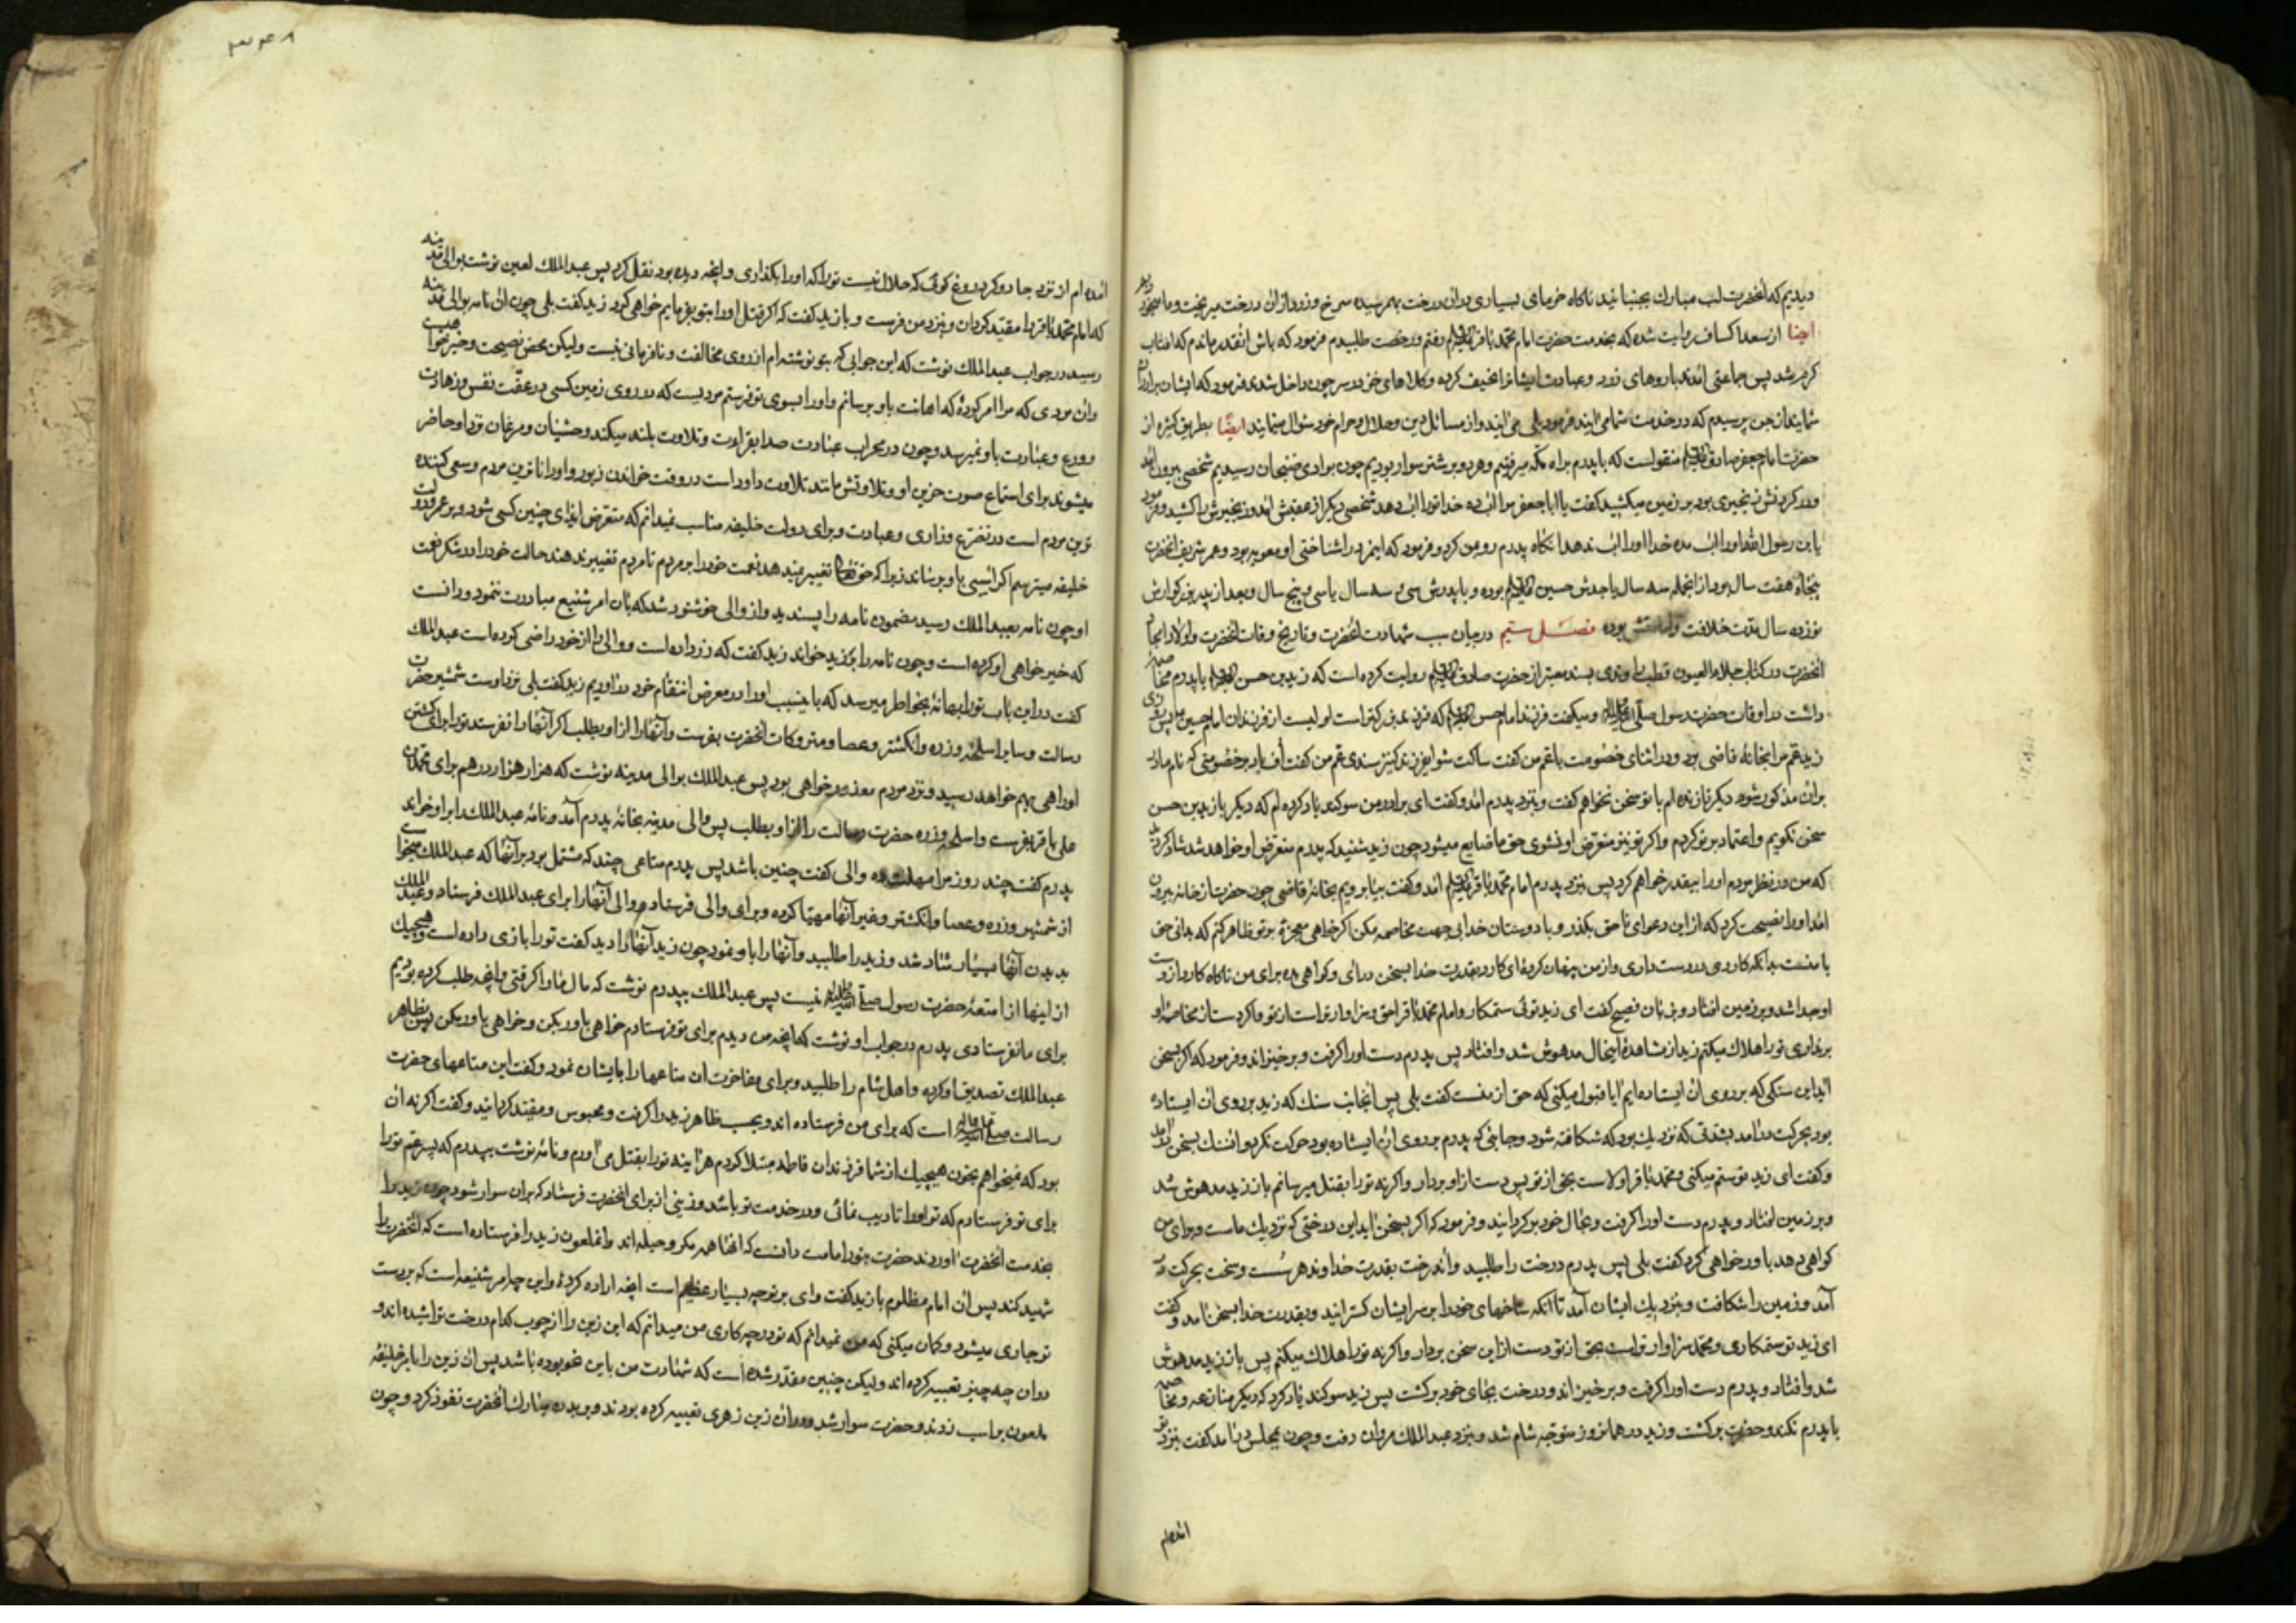 دیدیم که انحضرت لب مبارک بجنبانید ناکاه خرمای بسیاری دران درخت بهم رسیده سرخ و زرد و ازان درخت میریخت و ما میخوردیم
ایضا از سعد اسکاف روایت شده که بخدمت حضرت امام محمد باقر علیه السلام رفتم و رخصت طلبیدم فرمود که باش انقدر ماندم که افتاب
کرم شد پس جماعتی امدند با روهای زرد و عبادت ایشانرا نحیف کرده و کلاههای خز در سر چون داخل شدند فرمود که ایشان برادران
شمایند از جن پرسیدم که در خدمت شما می ایند فرمود بلی می ایند و از مسائل دین و حلال و حرام خود سؤال مینمایند ایضا بطریق کثیره از
حضرت امام جعفر صادق علیه السلام منقولست که با پدرم براه مکه میرفتیم و هر دو بر شتر سوار بودیم چون بوادی ضجنان رسیدیم شخصی بیرون امد
و در کردنش زنجیری بود بر زمین میکشید کفت یا ابا جعفر مرا اب ده خدا تورا اب دهد شخصی دیکر از عقبش امد و زنجیرش را کشید و فرمود
یا ابن رسول الله او را اب مده خدا او را اب ندهد انکاه پدرم رو بمن کرد و فرمود که اینمرد را شناختی او معویه بود و عمر شریف انحضرت
پنجاه هفت سال بود از انجمله سه سال با جدش حسین علیه السلام بوده و با پدرش سی و سه سال یا سی و پنج سال و بعد از پدر بزرکوارش
نوزده سال مدت خلافت و امامتش بوده فصل سیم در بیان سبب شهادت انحضرت و تاریخ وفات انحضرت و اولاد امجاد
انحضرت در کتاب جلاء العیون قطب راوندی بسند معتبر از حضرت صادق علیه السلام روایت کرده است که زید بن حسن علیه السلام با پدرم مخاصمه
داشت در اوقاف حضرت رسول صلی الله علیه واله و میکفت فرزند امام حسن علیه السلام که فرزند بزرکتر است اولیست از فرزندان امام حسین پس روزی
زید عم مرا بخانه قاضی برد و در اثنای خصومت با عم من کفت ساکت شو ایفرزند کنیز سندی عم من کفت اف باد بر خصومتی که نام مادر
بران مذکور شود دیکر تا زنده ام با تو سخن نخواهم کفت و بنزد پدرم امد و کفت ای برادر من سوکند یاد کرده ام که دیکر با زید بن حسن
سخن نکویم و اعتماد بر تو کردم و اکر تو نیز متعرض او نشوی حق ما ضایع میشود چون زید شنید که پدرم متعرض او خواهد شد شاد کردید
که من در نظر مردم او را بیقدر خواهم کرد پس بنزد پدرم امام محمد باقر علیه السلام امد و کفت بیا برویم بخانه قاضی چون حضرت از خانه بیرون
امد او را نصیحت کرد که از این دعوای نا حق بکذر و با دوستان خدا بی جهت مخاصمه مکن اکر خواهی معجزه بر تو ظاهر کنم که بدانی حق
با منست بدانکه کاردی در دست داری و از من پنهان کرده ای کارد بقدرت خدا بسخن درای و کواهی ده برای من ناکاه کارد از دست
او جدا شد و بر زمین افتاد و بزبان فصیح کفت ای زید توئی ستمکار و امام محمد باقر احق و سزاوارتر است از تو و اکر دست از مخاصمه او
برنداری تورا هلاک میکنم زید از مشاهده اینحال مدهوش شد و افتاد پس پدرم دست او را کرفت و برخیزاند و فرمود که اکر بسخن
اید این سنکی که بر روی ان ایستاده ایم ایا قبول میکنی که حق از منست کفت بلی پس انجانب سنک که زید بر روی ان ایستاده
بود بحرکت درامد بشدتی که نزدیک بود که شکافته شود و جانبی که پدرم بر روی ان ایستاده بود حرکت نکرد و ان سنک بسخن درامد
و کفت ای زید تو ستم میکنی و محمد باقر اولاست بحق از تو پس دست از او بردار و اکر نه تورا بقتل میرسانم باز زید مدهوش شد
و بر زمین افتاد و پدرم دست او را کرفت و بحال خود برکردانید و فرمود که اکر بسخن اید این درختی که نزدیک ماست و برای من
کواهی دهد باور خواهی کرد کفت بلی پس پدرم درخت را طلبید و اندرخت بقدرت خداوند هر سست و سخت بحرکت در
آمد و زمین را شکافت و بنزدیک ایشان آمد تا آنکه شاخهای خود را بر سر ایشان کسترانید و بقدرت خدا بسخن امد و کفت
ای زید تو ستمکاری و محمد سزاوارتر است بحق از تو دست از این سخن بردار و اکر نه تورا هلاک میکنم پس باز زید مدهوش
شد و افتاد و پدرم دست او را کرفت و برخیزاند و درخت بجای خود برکشت پس زید سوکند یاد کرد که دیکر منازعه و مخاصمه
با پدرم نکند و حضرت برکشت و زید در همانروز متوجه شام شد و بنزد عبد الملک مروان رفت و چون بمجلس درامد کفت بنزد تو
امده ام
امده ام از نزد جادوکر دروغ کوئی که حلال نیست تورا که او را بکذاری و انچه دیده بود نقل کرد پس عبد الملک لعین نوشت بوالی مدینه
که امام محمد باقر را مقید کردان و بنزد من فرست و با زید کفت که اکر قتل او را بتو بفرمایم خواهی کرد زید کفت بلی چون ان نامه بوالی مدینه
رسید در جواب عبد الملک نوشت که این جوابی که بتو نوشته ام از روی مخالفت و نافرمانی نیست ولیکن محض نصیحت و خیر خواهیست
وان مردی که مرا امر کرده که اهانت باو برسانم و او را بسوی تو فرستم مردیست که در روی زمین کسی در عفت نفس و زهادت
و ورع و عبادت باو نمیرسد و چون در محراب عبادت صدا بقراءت و تلاوت بلند میکند وحشیان و مرغان نزد او حاضر
میشوند برای استماع صوت حزین او و تلاوتش مانند تلاوت داود است در وقت خواندن زبور و او را داناترین مردم و سعی کننده
ترین مردم است در تضرع و زاری و عبادت و برای دولت خلیفه مناسب نمیدانم که متعرض ایذای چنین کسی شود و بر عمر و دولت
خلیفه میترسم اکر اسیبی باو برساند زیرا که حق تعالی تغییر نمیدهد نعمت خود را بر مردم تا مردم تغییر ندهند حالت خود را در شکر نعمت
او چون نامه بعبد الملک رسید مضمون نامه را پسندید و از والی خوشنود شد که بان امر شنیع مبادرت ننمود و دانست
که خیر خواهی او کرده است و چون نامه را بزید خواند زید کفت که زر داده است و والی را از خود راضی کرده است عبد الملک
کفت در این باب تورا بهانه بخواطر میرسد که باینسبب او را در معرض انتقام خود درآوریم زید کفت بلی نزد اوست شمشیر حضرت
رسالت و سایر اسلحه و زره و انکشتر و عصا و متروکات انحضرت بفرست و آنها را از او بطلب اکر آنها را نفرستد تورا برای کشتن
او راهی بهم خواهد رسید و نزد مردم معذور خواهی بود پس عبد الملک بوالی مدینه نوشت که هزار هزار درهم برای محمد بن
علی باقر بفرست و اسلحه و زره حضرت رسالت را از او بطلب پس والی مدینه بخانه پدرم آمد و نامه عبد الملک را بر او خواند
پدرم کفت چند روز مرا مهلت ده والی کفت چنین باشد پس پدرم متاعی چند که مشتمل بود بر آنها که عبد الملک میخواست
از شمشیر و زره و عصا و انکشتر و غیر آنها مهیا کرده و برای والی فرستاد و والی آنها را برای عبد الملک فرستاد و عبد الملک
بدیدن آنها بسیار شاد شد و زید را طلبید و آنها را باو نمود چون زید آنها را دید کفت تورا بازی داده است و هیچیک
از اینها از امتعه حضرت رسول صلی الله علیه واله نیست پس عبد الملک بپدرم نوشت که مال ما را کرفتی و انچه طلب کرده بودیم
برای ما نفرستادی پدرم در جواب او نوشت که انچه من دیدم برای تو فرستادم خواهی باور بکن و خواهی باور مکن پس بظاهر
عبد الملک تصدیق او کرده و اهل شام را طلبید و برای مفاخرت ان متاعها را بایشان نمود و کفت این متاعهای حضرت
رسالت صلی الله علیه واله است که برای من فرستاده اند و بحسب ظاهر زید را کرفت و محبوس و مقید کردانید و کفت اکر نه ان
بود که نمیخواهم بخون هیچیک از شما فرزندان فاطمه مبتلا کردم هراینه تورا بقتل می اوردم و نامه نوشت بپدرم که پسر عم تورا
برای تو فرستادم که تو او را تادیب نمائی و در خدمت تو باشد و زینی از برای انحضرت فرستاد که بران سوار شود چون زید را
بخدمت انحضرت اوردند حضرت بنور امامت دانست که انها همه مکر و حیله اند و انملعون زید را فرستاده است که انحضرت را
شهید کند پس ان امام مظلوم با زید کفت وای بر تو چه بسیار عظیم است انچه اراده کردهٔ و این چه امر شنیعه است که بر دست
تو جاری میشود و کمان میکنی که من نمیدانم که تو در چه کاری من میدانم که این زین را از چوب کدام درخت تراشیده اند و
دران چه چیز تعبیه کرده اند ولیکن چنین مقدر شده است که شهادت من باین نحو بوده باشد پس ان زین را بامر خلیفهٔ
ملعون بر اسب زدند و حضرت سوار شد و دران زین زهری تعبیه کرده بودند و بر بدن مبارک انحضرت نفوذ کرد و چون